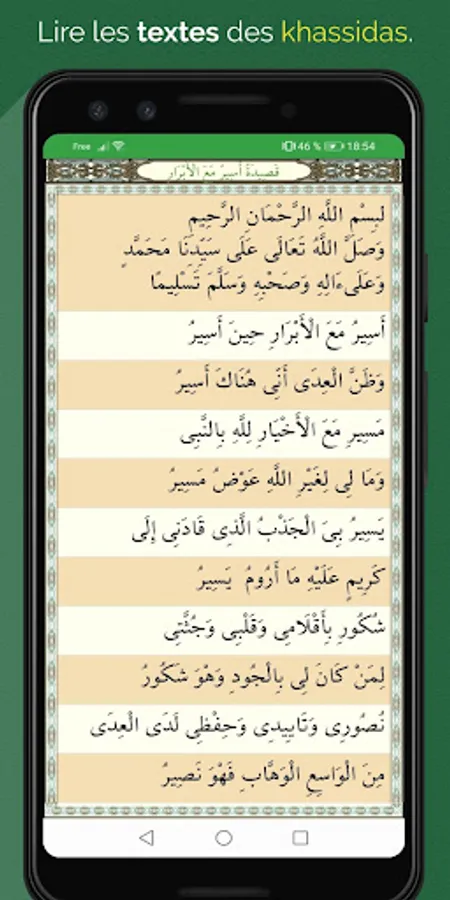 Lire les textes des khassidas.
Free 46 % 18:54
قَصِيدَةُ أَسِيرُ مَعَ الْأَبْرَارِ
لبِسْمِ اللَّهِ الرَّحْمَانِ الرَّحِيمِ
وَصَلَّ اللَّهُ تَعَالَى عَلَى سَيِّدِنَا مَحَمَّدٍ
وَعَلَىءَالِهِ وَصَحْبِهِ وَسَلَّمَ تَسْلِيمًا
أَسِيرُ مَعَ الْأَبْرَارِ حِينَ أَسِيرُ
وَظَنَّ الْعِدَى أَنِّى هُنَاكَ أَسِيرُ
مَسِيرِ مَعَ الْأَخْيَارِ لِلَّهِ بِالنَّبِى
وَمَا لِى لِغَيْرِ اللَّهِ عَوْضُ مَسِيرُ
يَسِيرُ بِىَ الْجَذْبُ الَّذِى قَادَنِى إِلَى
كَرِيمٍ عَلَيْهِ مَا أَرُومُ يَسِيرُ
شُكُورِ بِأَقْلَامِى وَقَلْبِى وَجُثَّتِى
لِمَنْ كَانَ لِى بِالْجُودِ وَهْوَ شَكُورُ
نُصُورِى وَتَايِيدِى وَحِفْظِى لَدَى الْعِدَى
مِنَ الْوَاسِعِ الْوَهَّابِ فَهْوَ نَصِيرُ